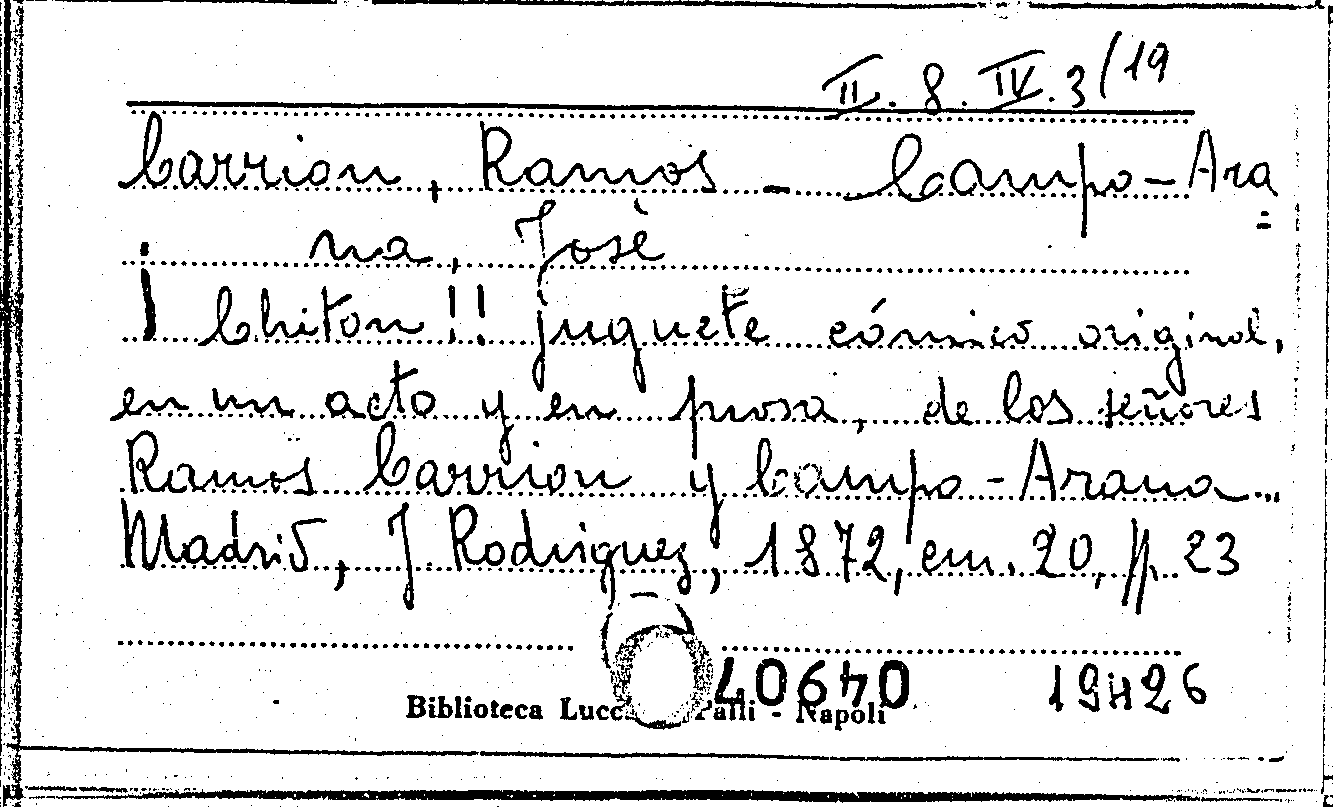 II. 8. IV. 3/19
Carrion, Ramos - Campo-Ara
na, Josè
¡Chiton!! juguete cómico original,
en un acto y en prosa, de los señores
Ramos Carrion y Campo-Arana...
Madrid, J. Rodriguez, 1872, cm. 20, pp. 23
19426
Biblioteca Palli - Napoli